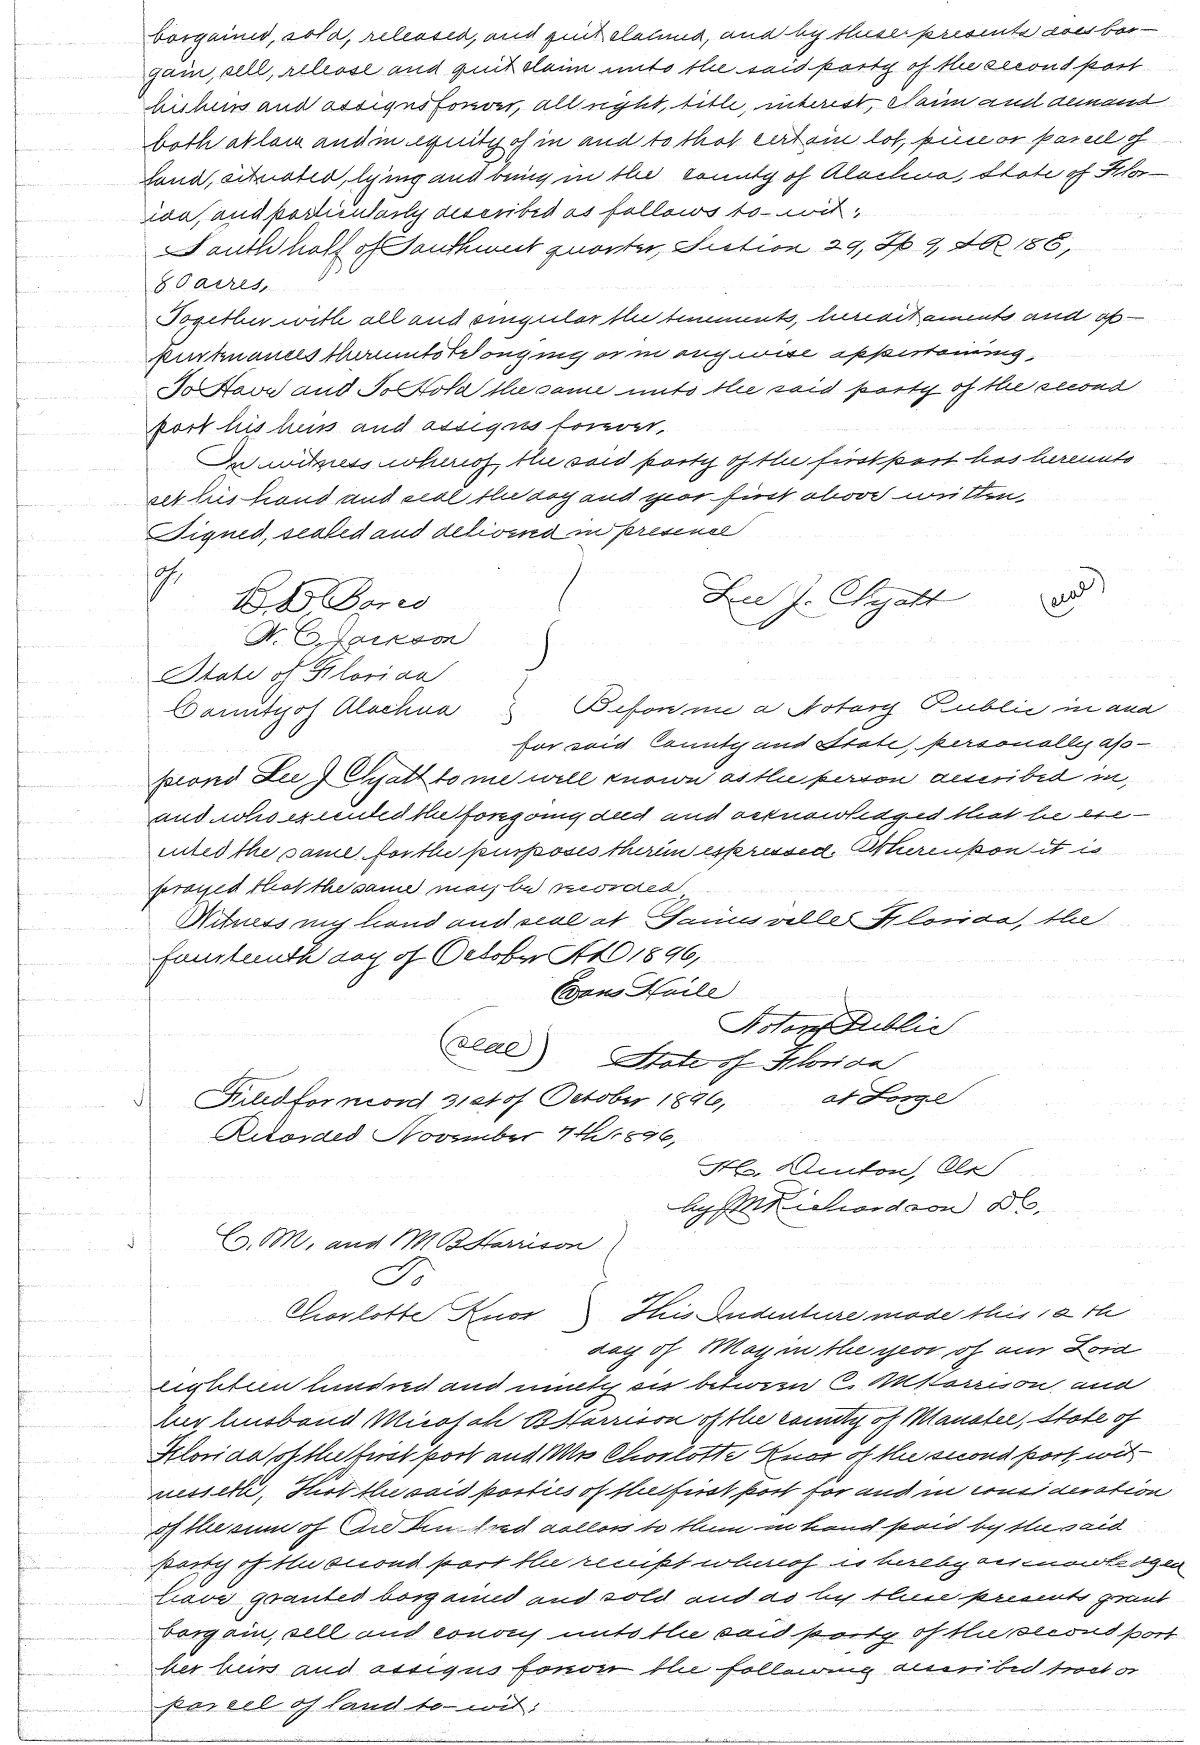 bargained, sold, released, and quit claimed, and by these presents does bar-
gain, sell, release and quit claim unto the said party of the second part
his heirs and assigns forever, all right, title, interest, claim and demand
both at law and in equity of in and to that certain lot, piece or parcel of
land, situated, lying and being in the county of Alachua, State of Flor-
ida, and particularly described as follows to-wit:
South half of Southwest quarter, Section 29, Tp 9, S R 18 E,
80 acres,
Together with all and singular the tenements, hereditaments and ap-
purtenances thereunto belonging or in anywise appertaining,
To Have and To Hold the same unto the said party of the second
part his heirs and assigns forever,
In witness whereof, the said party of the first part has hereunto
set his hand and seal the day and year first above written,
Signed, sealed and delivered in presence
of,
Lee J. Clyatt (seal)
Jackson
State of Florida
County of Alachua } Before me a Notary Public in and
for said County and State, personally ap-
peared Lee J Clyatt to me well known as the person described in,
and who executed the foregoing deed and acknowledged that he exe-
cuted the same for the purposes therein expressed. Whereupon it is
prayed that the same may be recorded
Witness my hand and seal at Gainesville Florida, the
fourteenth day of October AD 1896,
Evans Haile
Notary Public
(seal) State of Florida
Filed for record 31st of October 1896, at Large
Recorded November 7th 1896,
Denton, Clk
by Richardson DC,
C. M. and M B Harrison
To
Charlotte Knox } This Indenture made this 12th
day of May in the year of our Lord
eighteen hundred and ninety six between C. M Harrison and
her husband Micajah B Harrison of the county of Manatee, State of
Florida, of the first part and Mrs Charlotte Knox of the second part, wit-
nesseth, That the said parties of the first part for and in consideration
of the sum of One Hundred dollars to them in hand paid by the said
party of the second part the receipt whereof is hereby acknowledged
have granted bargained and sold and do by these presents grant
bargain, sell and convey unto the said party of the second part
her heirs and assigns forever the following described tract or
parcel of land to-wit: